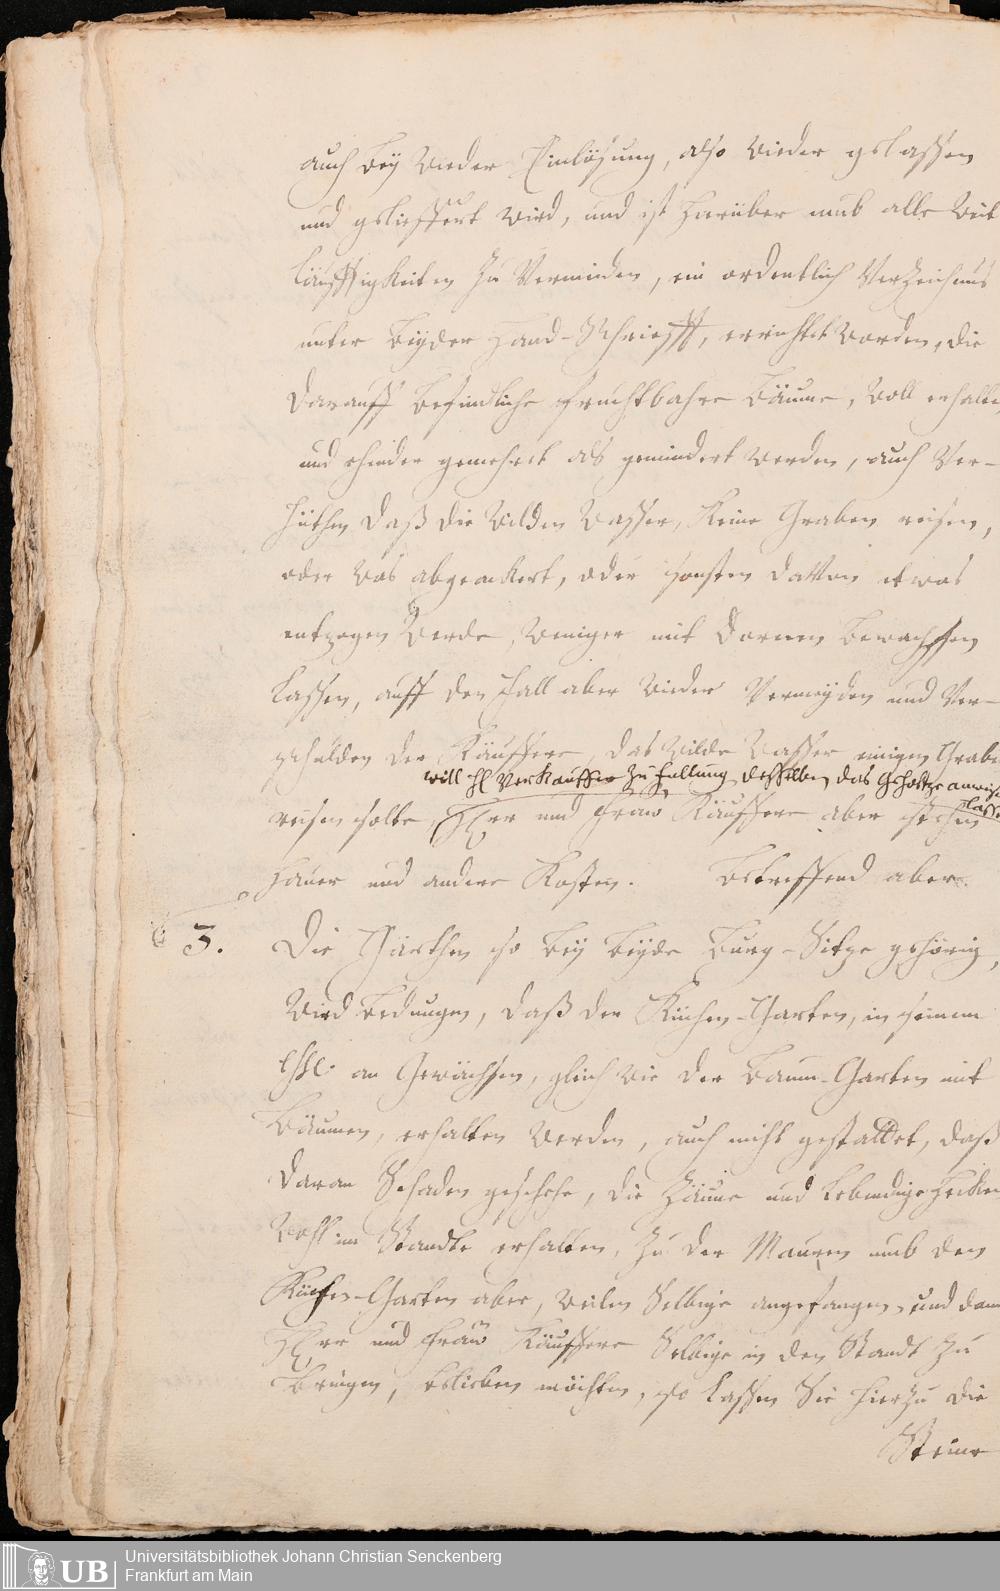 auch bey wieder Einlösung, also wieder gelassen
und geliessert wird, und ist hierüber umb alle Weit
läuffigkeiten zu vermeiden, ein ordentlich Verzeichnus
unter beyder Hand-Schriefft, errichtet worden, die
darauff befindliche fruchtbahre Bäume, woll erhalten,
und ehender gemehret als gemindert werden, auch Ver-
hüthen daß die wilden Wasser, keine Graben reisen,
oder was abgeackert, oder sonsten davon etwas
entzogen werde, weniger mit Dornen bewachssen
lassen, auff den Fall aber wieder Vermeyden und Ver-
schulden der Käuffere, das wilde Wasser einigen Graben
will H. Verkauffer zu fullung desselben das Geholtze anweise
lassen
reisen solte, Herr und Frau Käuffere aber stehen
Hauer und andere Kosten. Betreffend aber.
3. Die Gärthen so bey beyde Burg-Sitze gehörig,
wird bedungen, daß der Küchen-Garten, in seinem
an Gewächsen, gleich wie der Baum-Garten mit
Bäumen, erhalten werden, auch nicht gestattet, daß
daran Schaden geschehe, die Zäune und lebendige Hecken
wohl im Standte erhalten, Zu der Mauren umb den
Küchen-Garten aber, weilen Selbige angefangen, und dann
Herr und Frau Käuffere Selbige in den Standt zu
bringen, belieben möchten, so lassen Sie hierzu die
Steine
Universitätsbibliothek Johann Christian Senckenberg
Frankfurt am Main
UB